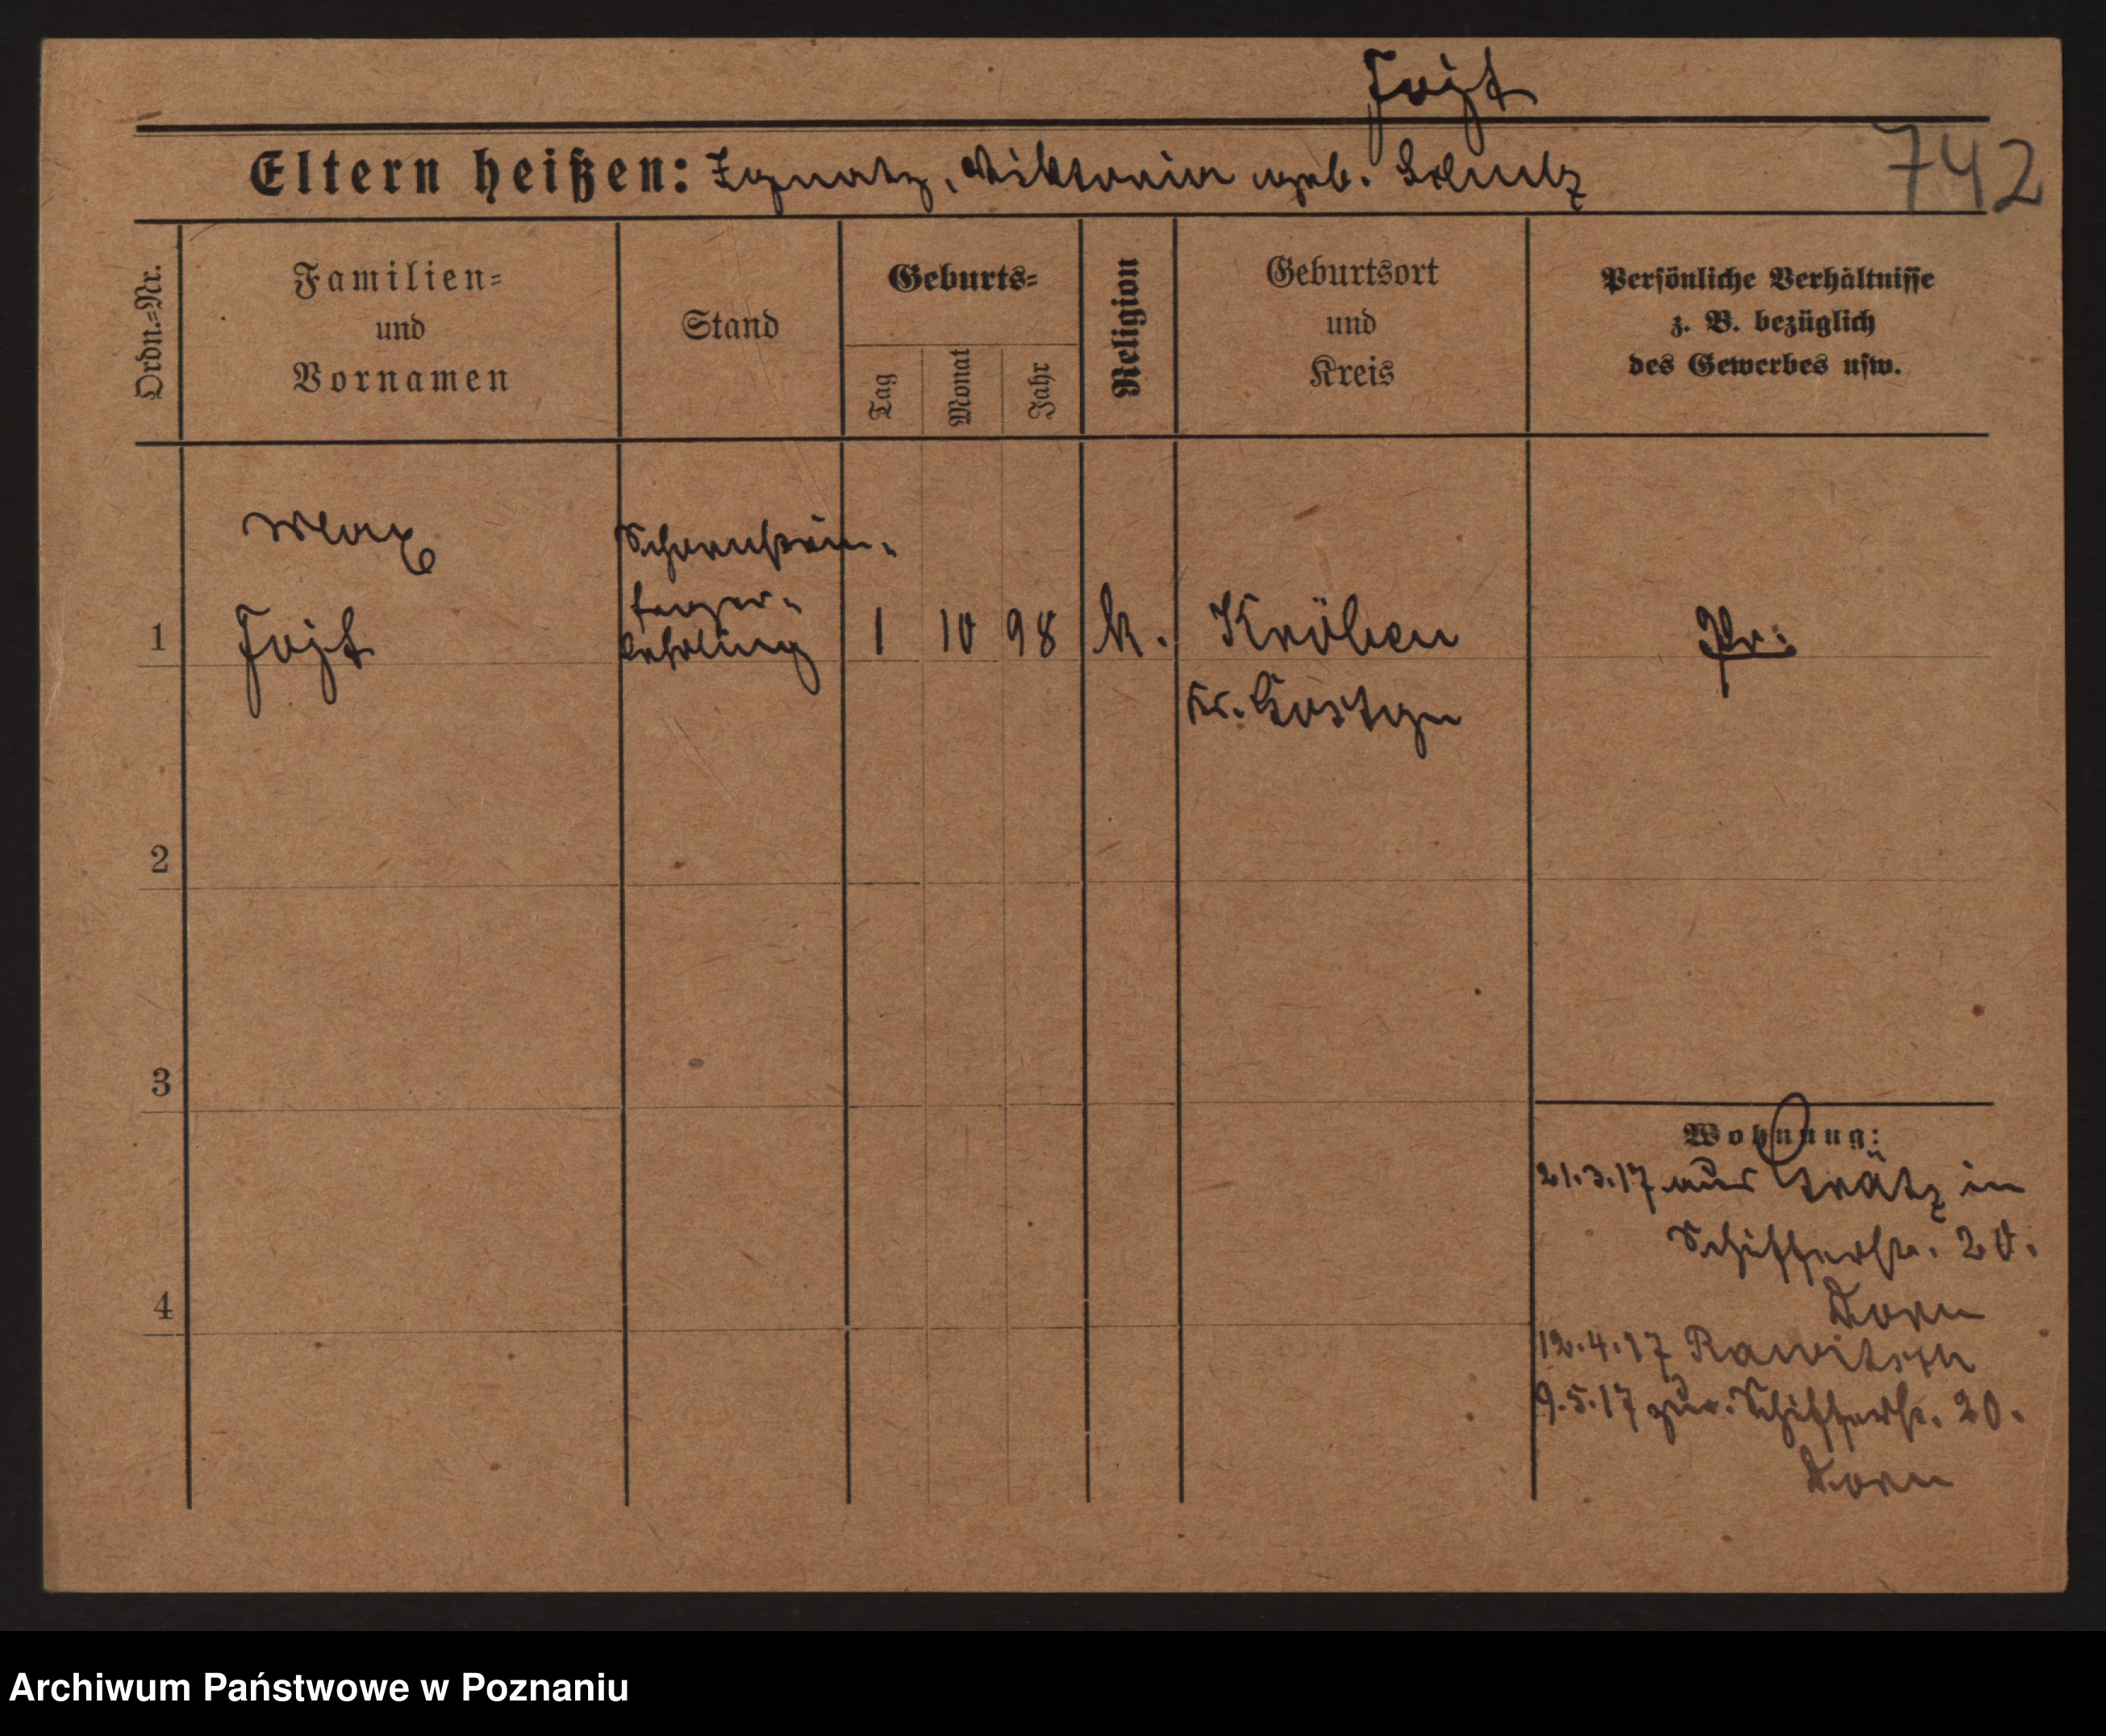 Fojt
Eltern heißen: Ignatz, Viktoria geb. Schulz
742
Ordn.=Nr.
Familien=
und
Vornamen
Stand
Geburts=
Tag
Monat
Jahr
Religion
Geburtsort
und
Kreis
Persönliche Verhältnisse
z. B. bezüglich
des Gewerbes usw.
Max
Schornstein-
feger-
1 Fojt lehrling 1 10 98 k. Kröben Pr.
Kr. Gostyn
2
3
Wohnung:
21.3.17 aus Grätz in
Schifferstr. 20.
Dorn
4
12.4.17 Rawitsch
9.5.17 zur. Schifferstr. 20.
Dorn
Archiwum Państwowe w Poznaniu